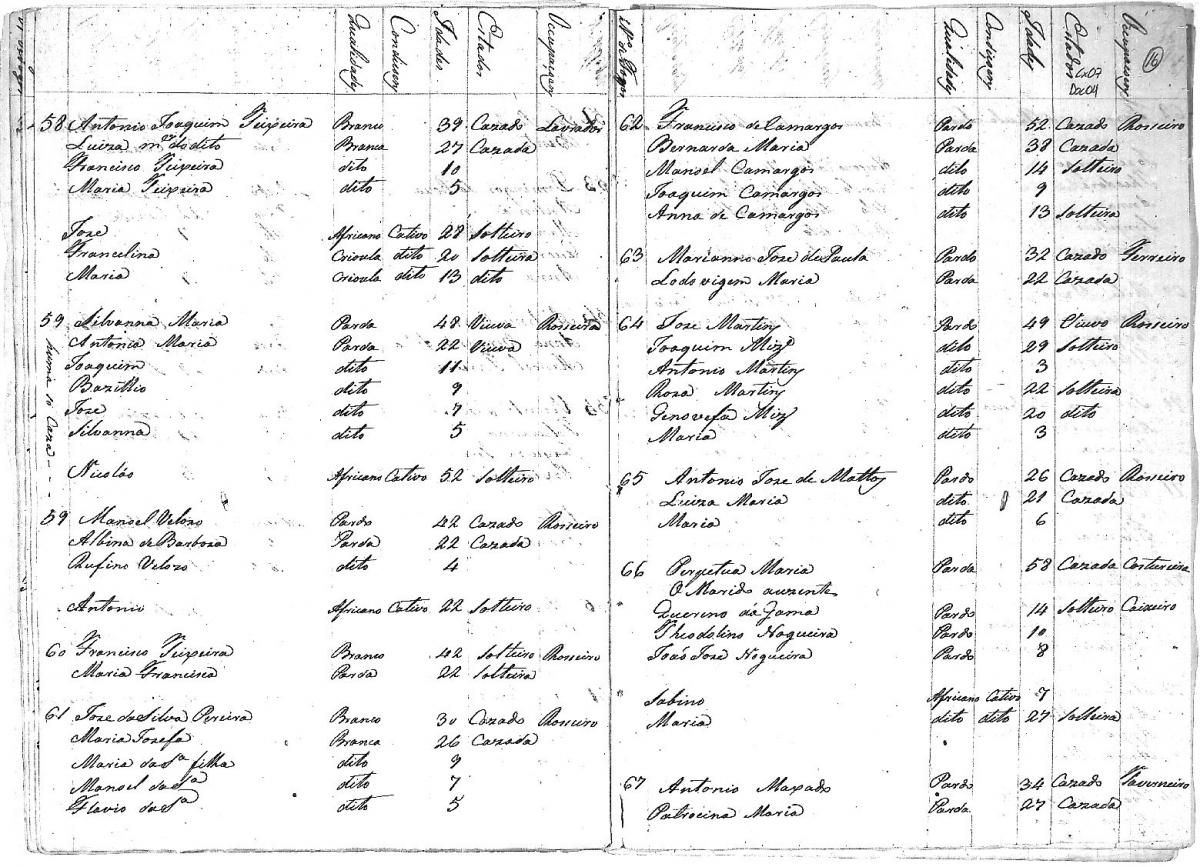 Qualidady Condiçoens Idades Estados Occupaçoens
58 Antonio Joaquim Teixeira Branco 39 Cazado Lavrador
Luiza m.er do dito Branca 27 Cazada
Francisco Teixeira dito 10
Maria Teixeira dito 5
Joze Africano Cativo 28 Solteiro
Francelina Crioula dito 20 Solteira
Maria Crioula dito 13 dito
59 Silvanna Maria Parda 48 Viuva Rosseira
Antonia Maria Parda 22 Viuva
Joaquim dito 11
Bazillio dito 9
Joze dito 7
Silvanna dito 5
Nicoláo Africano Cativo 52 Solteiro
huma só Caza
59 Manoel Velozo Pardo 42 Cazado Rosseiro
Albina de Barboza Parda 22 Cazada
Rufino Velozo dito 4
Antonio Africano Cativo 22 Solteiro
60 Francisco Teixeira Branco 42 Solteiro Rosseiro
Maria Francisca Parda 22 Solteira
61 Joze da Silva Pereira Branco 30 Cazado Rosseiro
Maria Josefa Branca 26 Cazada
Maria da S.a filha dito 9
Manoel da S.a dito 7
Flavio da S.a dito 5
N.os de Fogos Qualidady Condiçoens Idady Estados Occupassoens 16
Cx07
Doc04
62 Francisco de Camargos Pardo 52 Cazado Rosseiro
Bernarda Maria Parda 38 Cazada
Manoel Camargos dito 14 Solteiro
Joaquim Camargos dito 9
Anna de Camargos dito 13 Solteira
63 Marianno Joze de Paula Pardo 32 Cazado Ferreiro
Lodovigem Maria Parda 22 Cazada
64 Joze Martins Pardo 49 Viuvo Rosseiro
Joaquim Miz dito 29 Solteiro
Antonio Martins dito 3
Roza Martins dito 22 Solteira
Genovefa Miz dito 20 dito
Maria dito 3
65 Antonio Joze de Mattos Pardo 26 Cazado Rosseiro
Luiza Maria dito 21 Cazada
Maria dito 6
66 Perpetua Maria Parda 58 Cazada Costureira
O Marido auzente
Querino da Gama Pardo 14 Solteiro Caixeiro
Theodolino Nogueira Pardo 10
João Joze Nogueira Pardo 8
Sabino Africano Cativo 7
Maria dito dito 27 Solteira
67 Antonio Maxado Pardo 34 Cazado Taverneiro
Patrocina Maria Parda 27 Cazada